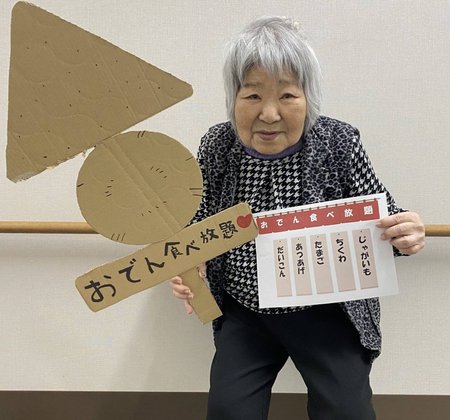 おでん食べ放題♥
おでん食べ放題
じゃがいも
ちくわ
たまご
あつあげ
だいこん